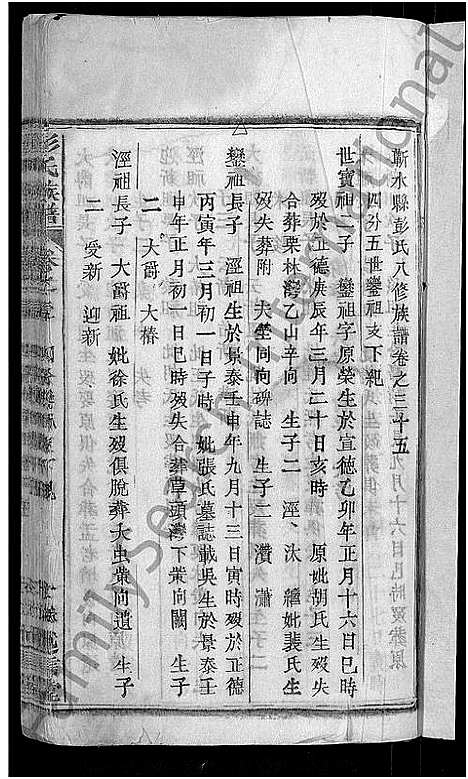 蘄水縣彭氏八修族譜卷之三十五
四分五世鑾祖支下紀
世寶祖二子 鑾祖字原榮生於宣德乙卯年正月十六日巳時
歿於正德庚辰年三月二十日亥時 原妣胡氏生歿失
合葬栗林灣乙山辛向 生子二 溼 汰 繼妣裴氏生
歿失葬附 夫塋同向碑誌 生子二 瀆 瀟
鑾祖長子 溼祖生於景泰壬申年九月十三日寅時歿於正德
丙寅年三月初一日子時 妣張氏墓誌載吳生於景泰壬
申年正月初一日巳時歿失合葬草頭灣下業向闕 生子
二 大爵 大椿
溼祖長子 大爵祖 妣徐氏生歿俱脫葬大虫業向遺 生子
二 愛新 迎新
彭氏族譜
Family Search International